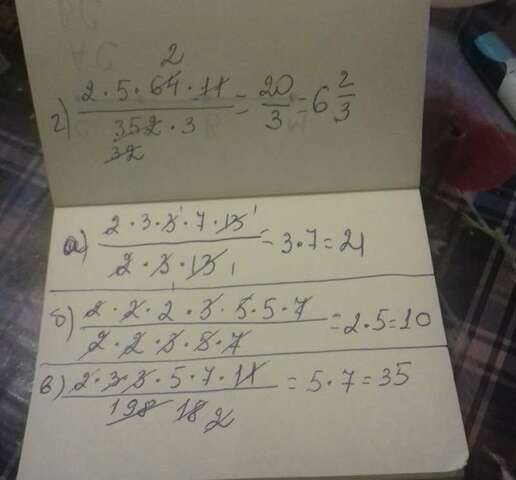 2
г) 2·5·64·11 / 352·3 = 20/3 = 6 2/3
32
а) 2·3·3·7·13 / 2·3·13 = 3·7=21
б) 2·2·2·3·5·5·7 / 2·2·3·5·7 = 2·5=10
в) 2·3·3·5·7·11 / 198 18 2 = 5·7=35